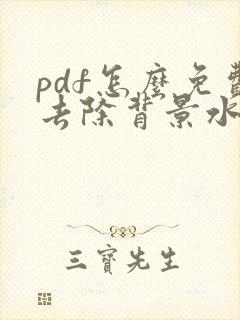 pdf怎麼免費
去除背景水
三寶先生